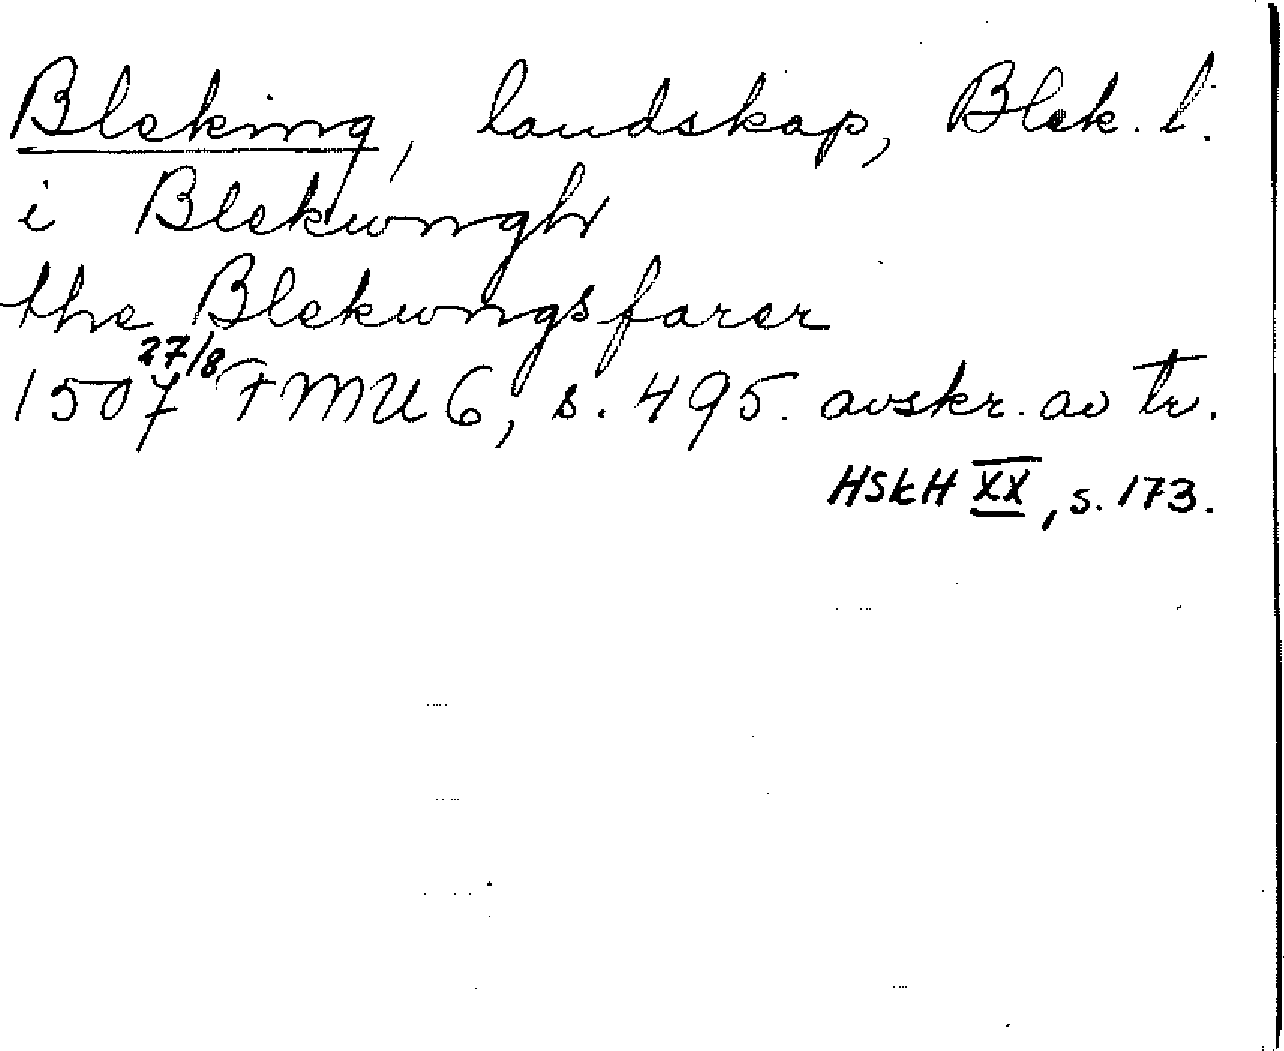 Bleking, landskap, Blek. l.
i Blekungh
the Blekungsfarer
1507 27/8 FMU 6, s. 495. avskr. av tr.
HSkH XX, s. 173.